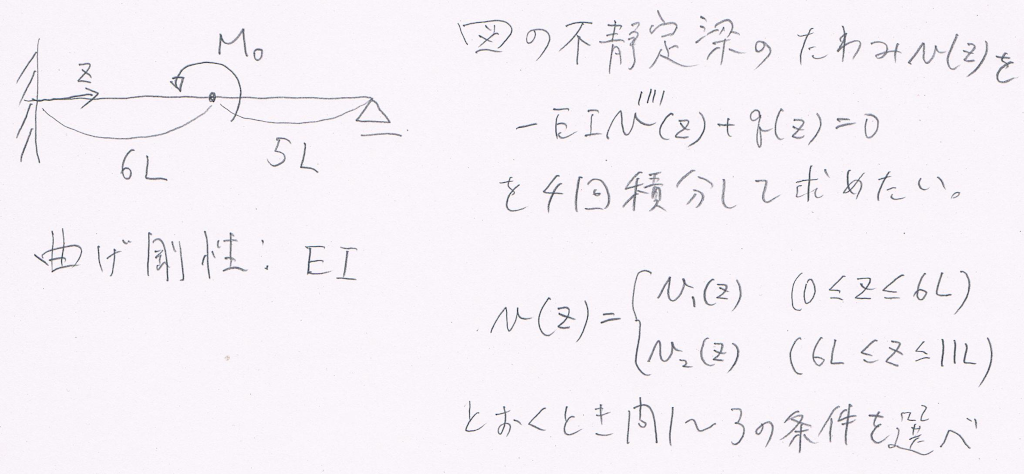 M₀
z
6L
5L
曲げ剛性: EI
図の不静定梁のたわみv(z)を
-EIv''''(z)+q(z)=0
を4回積分して求めたい。
v(z)={v₁(z) (0≤z≤6L)
v₂(z) (6L≤z≤11L)
とおくとき内1～3の条件を選べ